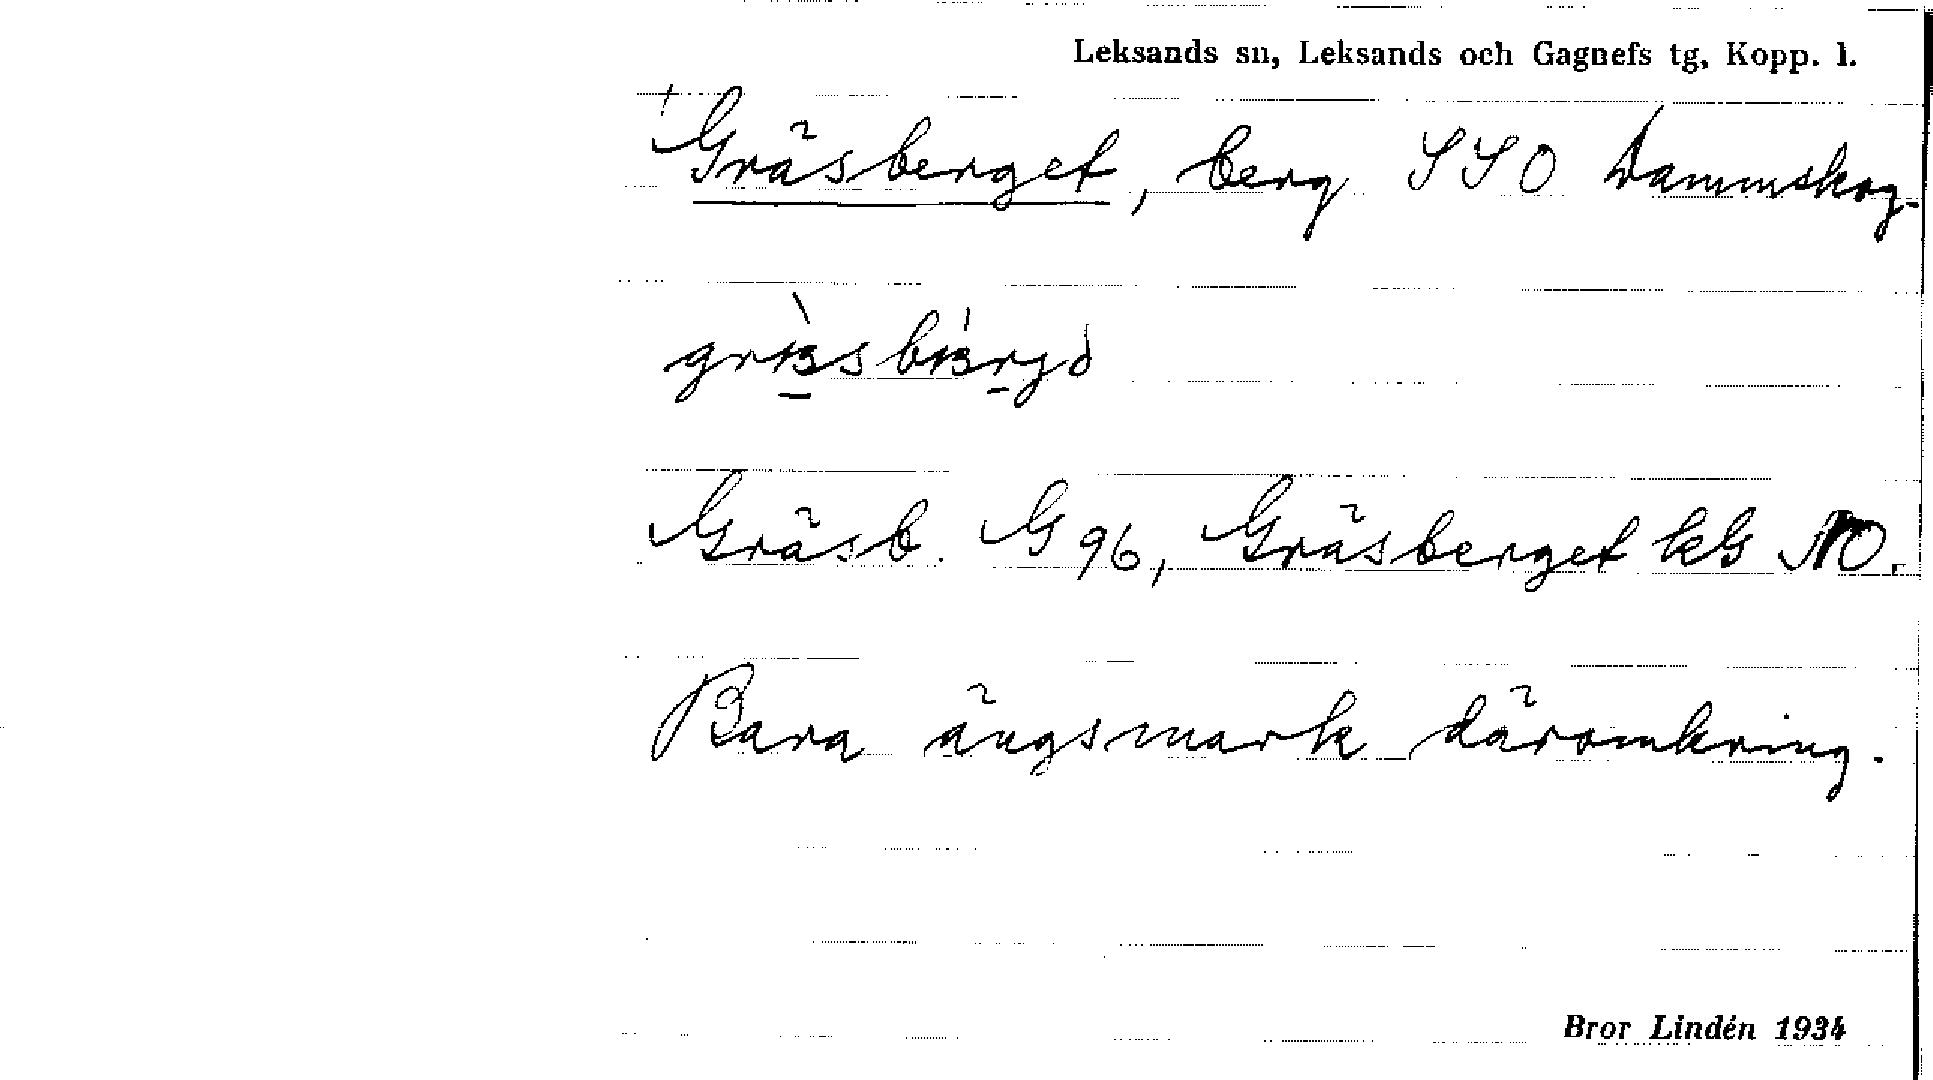 Leksands sn, Leksands och Gagnefs tg, Kopp. l.
Gräsberget, berg SSO Dammskog.
Gräsb. G 96, Gräsberget kG NO.
Bara ängsmark däromkring.
Bror Lindén 1934